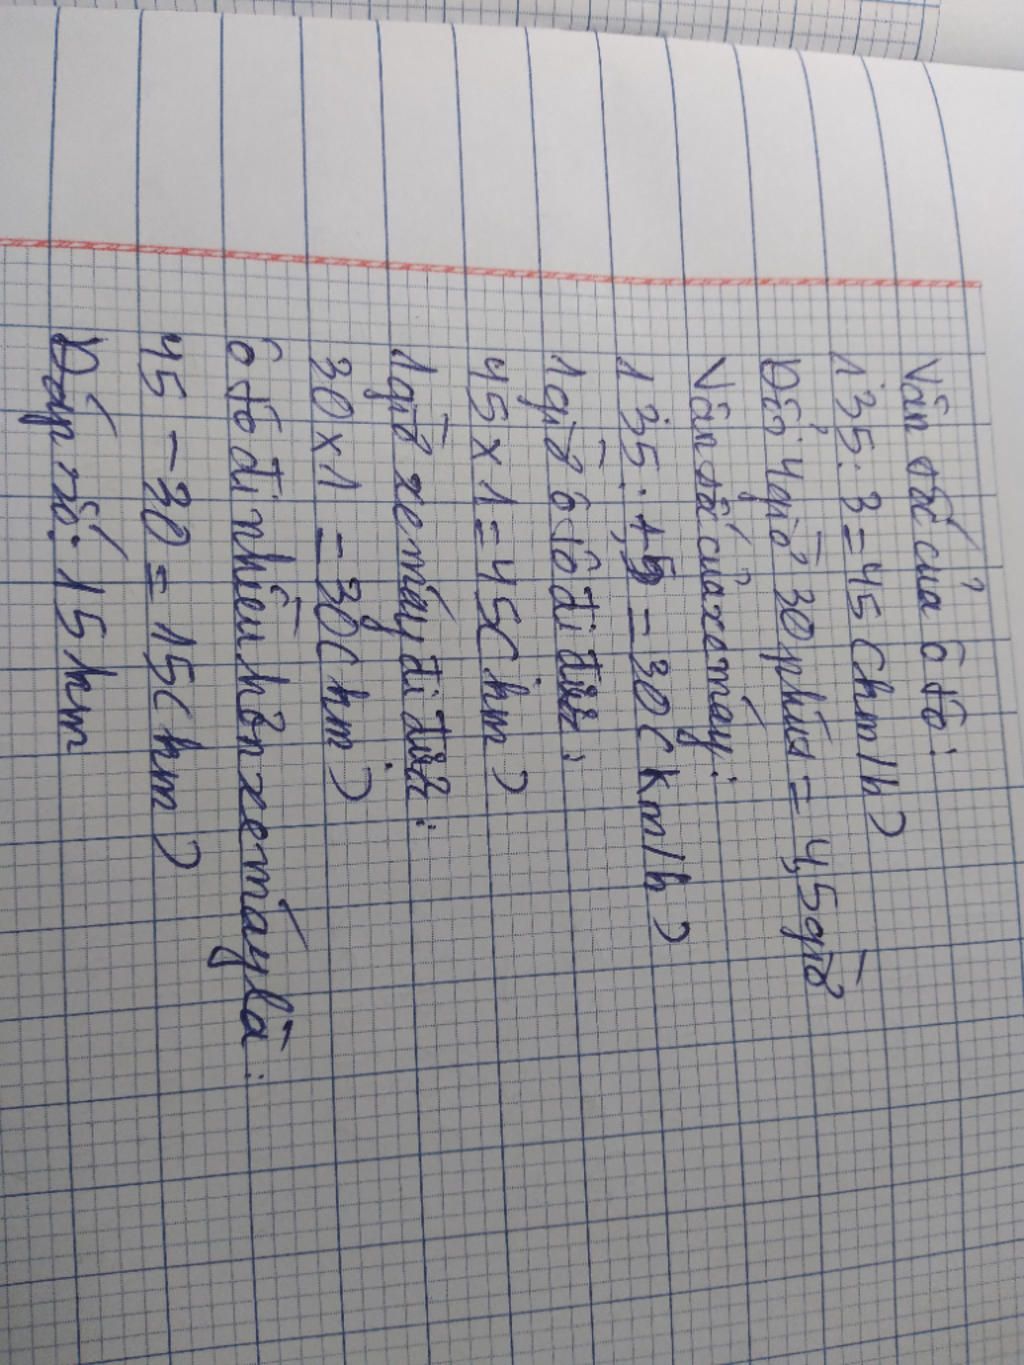 Vận tốc của ô tô:
135 : 3 = 45 (km/h)
Đổi 4 giờ 30 phút = 4,5 giờ
Vận tốc của xe máy:
135 : 4,5 = 30 (km/h)
1 giờ ô tô đi được:
45 x 1 = 45 (km)
1 giờ xe máy đi được:
30 x 1 = 30 (km)
ô tô đi nhiều hơn xe máy là:
45 - 30 = 15 (km)
Đáp số: 15 km